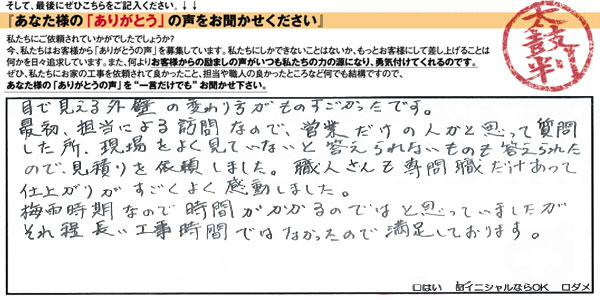 そして、最後にぜひこちらをご記入ください。↓↓
『あなた様の「ありがとう」の声をお聞かせください』
私たちにご依頼されていかがでしたでしょうか?
今、私たちはお客様から「ありがとうの声」を募集しています。私たちにしかできないことはないか、もっとお客様にして差し上げることは
何かを日々追求しています。また、何よりお客様からの励ましの声がいつも私たちの力の源になり、勇気付けてくれるのです。
ぜひ、私たちにお家の工事を依頼されて良かったこと、担当や職人の良かったところなど何でも結構ですので、
あなた様の「ありがとうの声」を“一言だけでも”お聞かせ下さい。
太鼓判
目で見える外壁の変わり方がものすごかったです。
最初、担当による訪問なので、営業だけの人かと思って質問
した所、現場をよく見ていないと答えられないものも答えられた
ので、見積りを依頼しました。職人さんも専門職だけあって
仕上がりがすごくよく感動しました。
梅雨時期なので時間がかかるのではと思っていましたが
それ程長い工事時間ではなかったので満足しております。
□はい ☑イニシャルならOK □ダメ